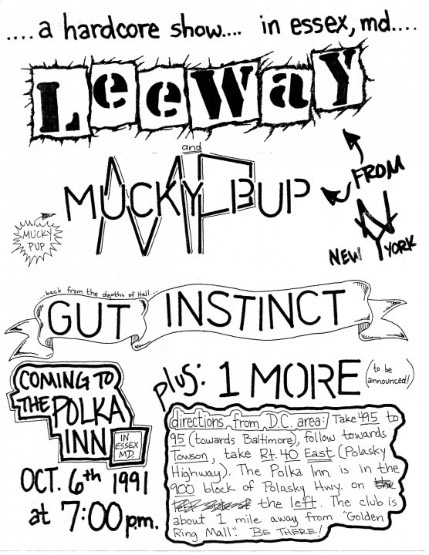 ....a hardcore show.... in essex, md....
LEEWAY
and
MUCKY PUP
FROM
NEW YORK
MUCKY
PUP
back from the depths of Hell...
GUT INSTINCT
COMING TO
THE POLKA
INN
IN
ESSEX
MD.
OCT. 6th 1991
at 7:00 pm.
plus: 1 MORE (to be
announced!)
directions from D.C. area: Take 495 to
95 (towards Baltimore), follow towards
Towson, take Rt. 40 East (Polasky
Highway). The Polka Inn is in the
900 block of Polasky Hwy. on
the left. The club is
about 1 mile away from "Golden
Ring Mall". BE THERE!